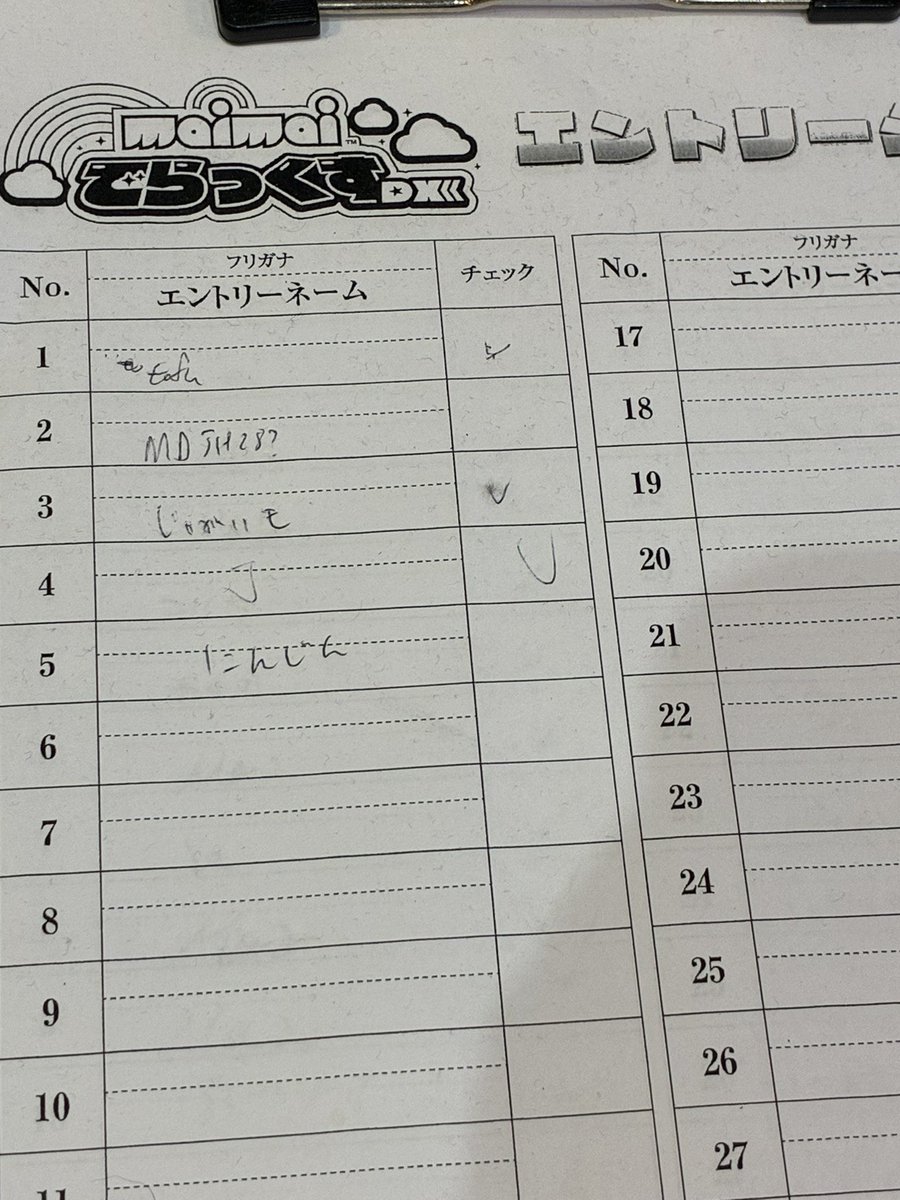 maimai
でらっくす DX
エントリー
No. フリガナ エントリーネーム チェック
1
2 MD JH28?
3 じゃがいも
4 J
5 にんじん
6
7
8
9
10
11
No. フリガナ
17
18
19
20
21
22
23
24
25
26
27